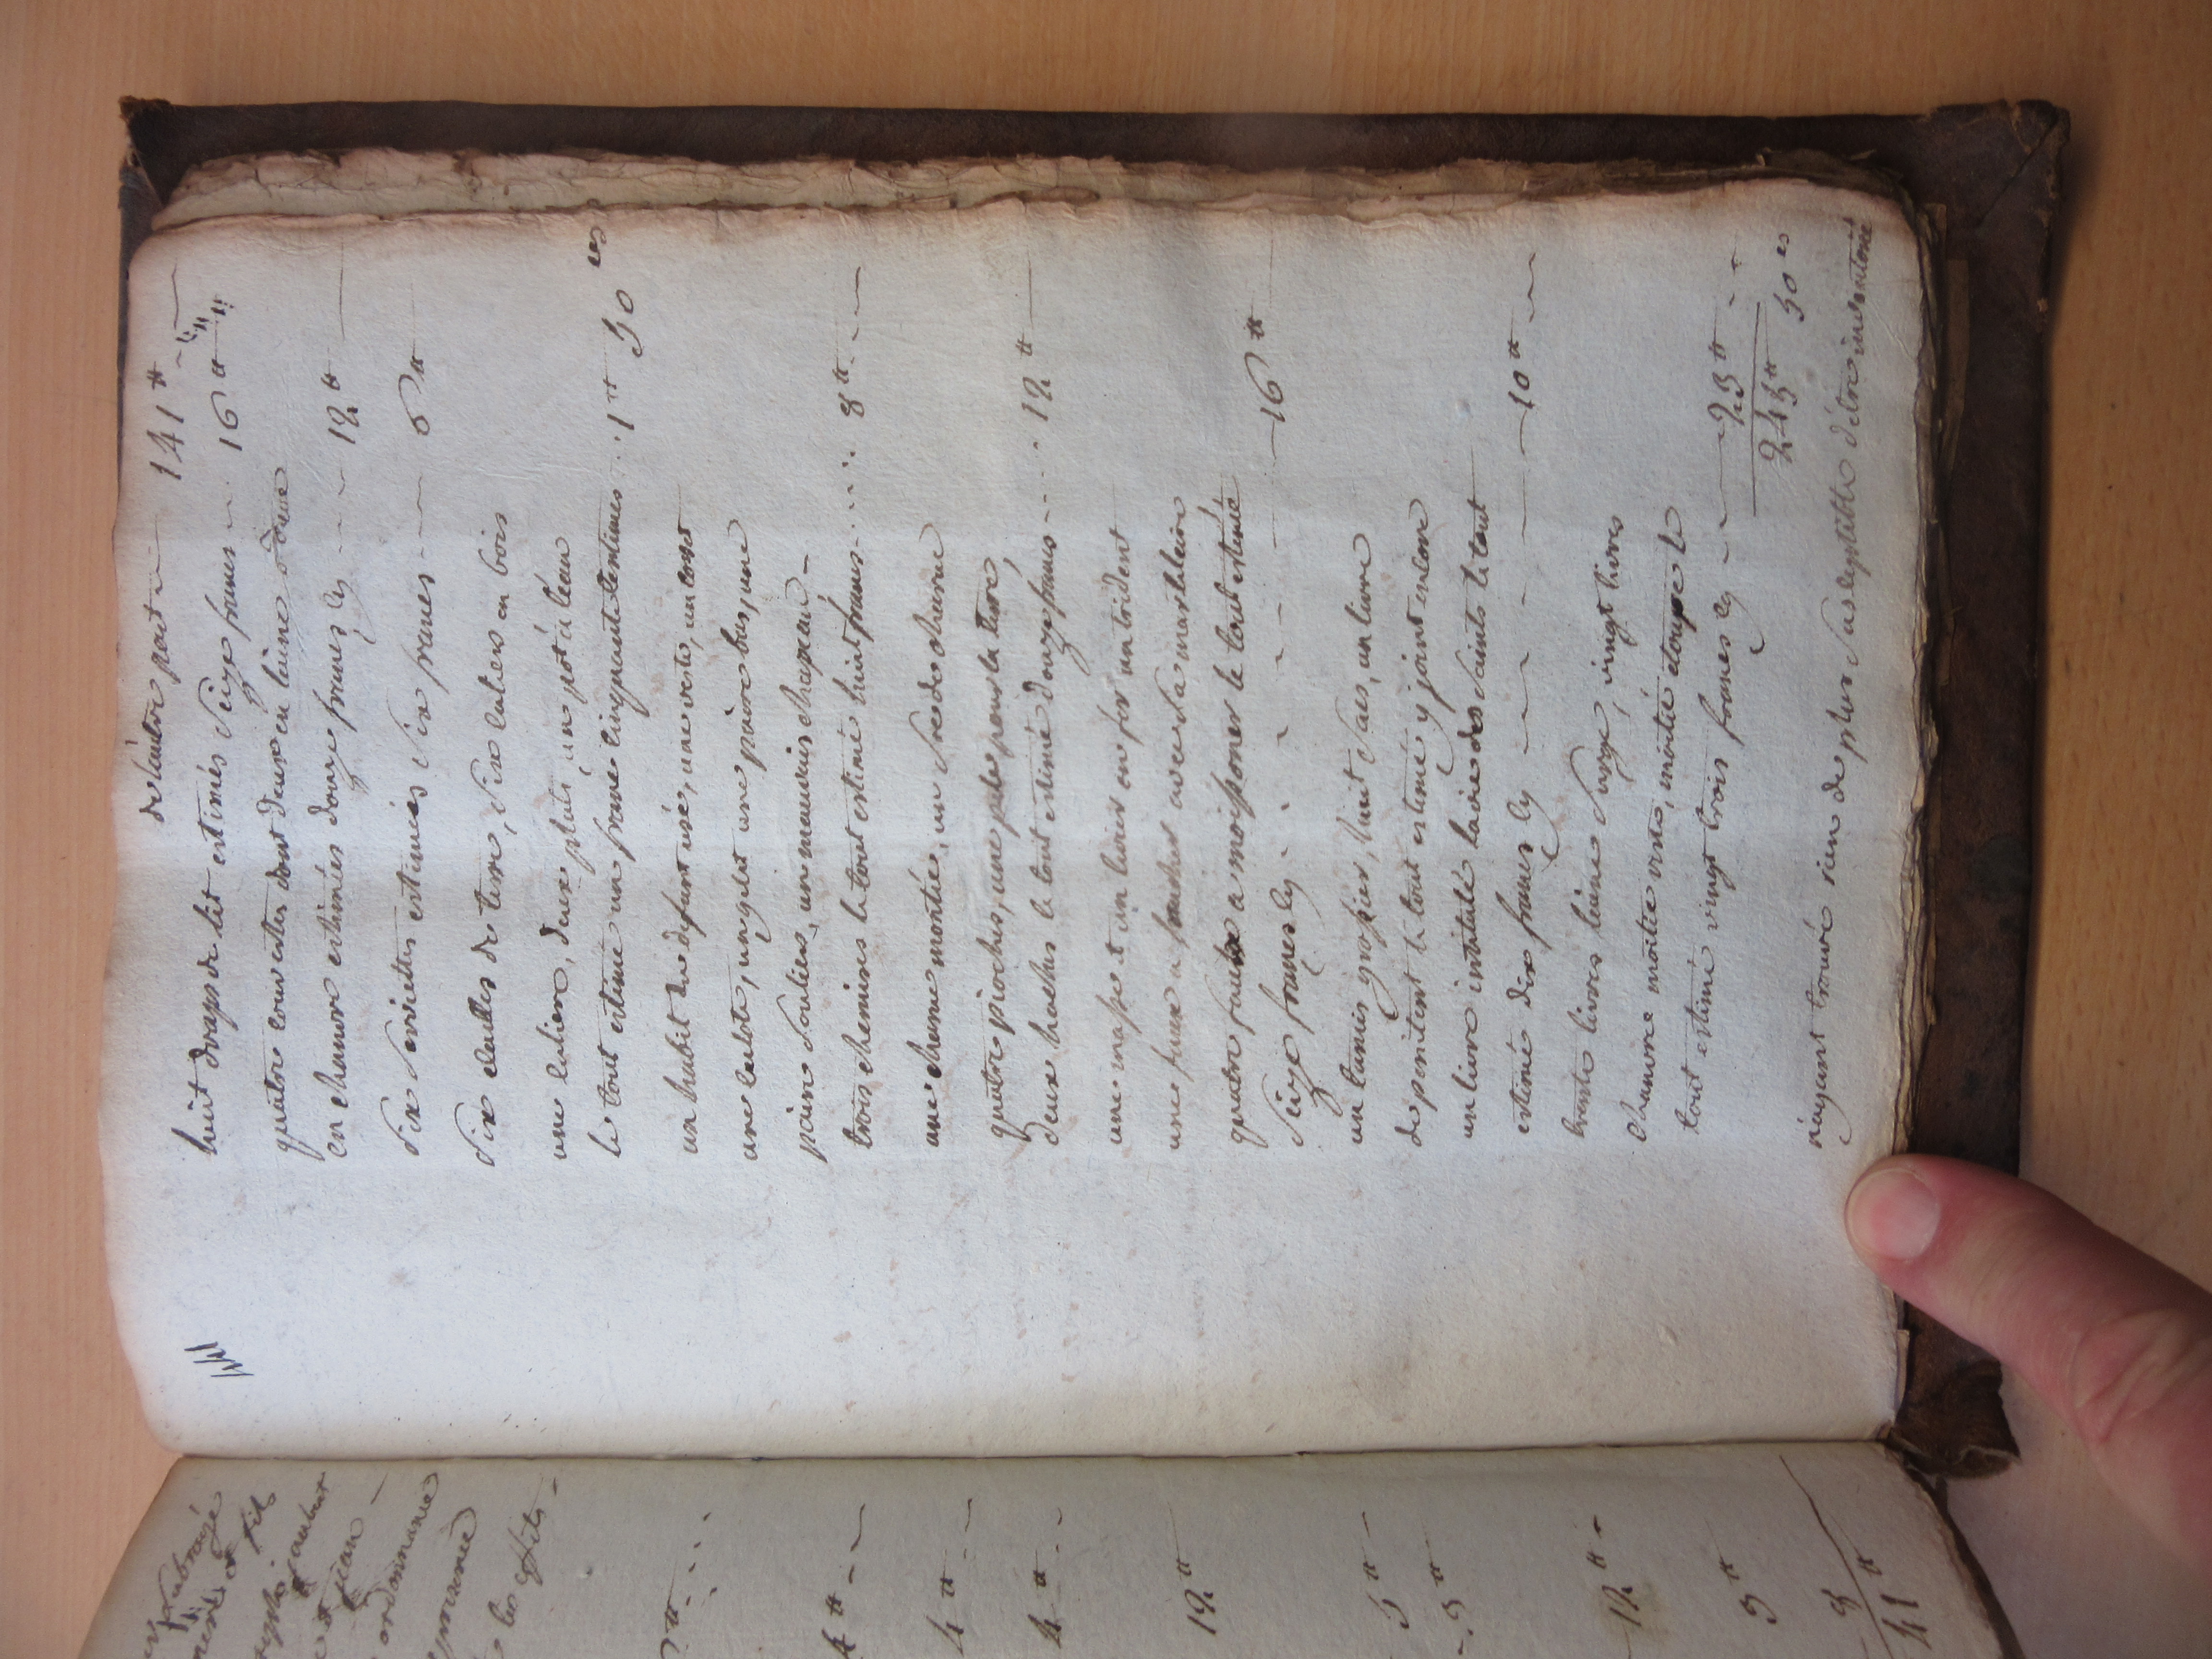 de lautre part 141 ₶
huit draps de lit estimés Seize francs 16 ₶
quatre couvertes dont deux en laine & deux
en chanvre estimées douze francs Cy 12 ₶
Six Serviettes estimées Six francs 6 ₶
Six ecuelles de terre, Six culiers en bois
une culiere, deux plats, un pot à l'eau
le tout estimé un franc cinquante centimes 1 ₶ 50 ces
un habit du defunt usé, une veste, un corset
une culote, un gilet une pairre bas, une
paire Souliers, un mauvais chapeau
trois chemises le tout estimé huit francs 8 ₶
une charrue montée, un Soc de charrue
quatre pioches, une pele pour la terre,
deux haches le tout estimé douze francs 12 ₶
une masse et un levier en fer un trident
une a faucher avec Sa
quatre a moissoner le tout estimé
Seize francs Cy 16 ₶
un tamis grossier, huit Sacs, un livre
de penitent le tout estimé y joint encore
un livre intitulé la vie des Saints le tout
estimé dix francs Cy 10 ₶
trente livres laine Surge, vingt livres
Chanvre moitié, moitié etoupe le
tout estimé vingt trois francs Cy 23 ₶
245 ₶ 50 es
n'ayant trouvé rien de plus Susceptible d'être inventorié
fils
jean
ordonnance
les effets
4 ₶
4 ₶
4 ₶
12 ₶
3 ₶
3 ₶
12 ₶
3 ₶
3
41 ₶